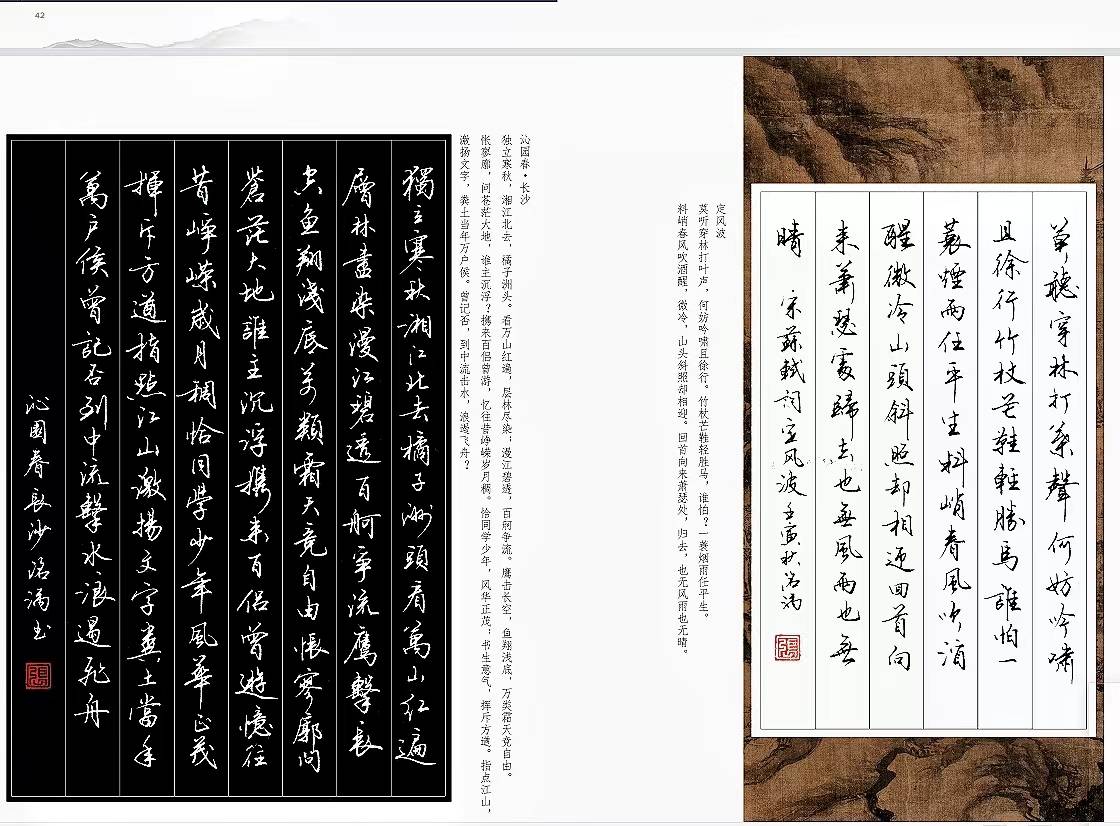 42
莫聽穿林打葉聲何妨吟嘯
且徐行竹杖芒鞋輕勝馬誰怕一
蓑煙雨任平生料峭春風吹酒
醒微冷山頭斜照却相迎回首向
来蕭瑟處歸去也無風雨也無
晴 宋蘇軾詞定风波壬寅秋洺满
定风波
莫听穿林打叶声，何妨吟啸且徐行。竹杖芒鞋轻胜马，谁怕？一蓑烟雨任平生。
料峭春风吹酒醒，微冷，山头斜照却相迎。回首向来萧瑟处，归去，也无风雨也无晴。
沁园春·长沙
独立寒秋，湘江北去，橘子洲头。看万山红遍，层林尽染；漫江碧透，百舸争流。鹰击长空，鱼翔浅底，万类霜天竞自由。
怅寥廓，问苍茫大地，谁主沉浮？携来百侣曾游，忆往昔峥嵘岁月稠。恰同学少年，风华正茂；书生意气，挥斥方遒。指点江山，
激扬文字，粪土当年万户侯。曾记否，到中流击水，浪遏飞舟？
獨立寒秋湘江北去橘子洲頭看萬山红遍
層林盡染漫江碧透百舸爭流鷹擊長
空鱼翔浅底万類霜天竞自由悵寥廓問
蒼茫大地誰主沉浮携来百侣曾遊憶往
昔崢嶸歲月稠恰同學少年風華正茂
揮斥方遒指點江山激揚文字糞土當年
萬户侯曾記否到中流擊水浪遏飛舟
沁園春長沙洺满书